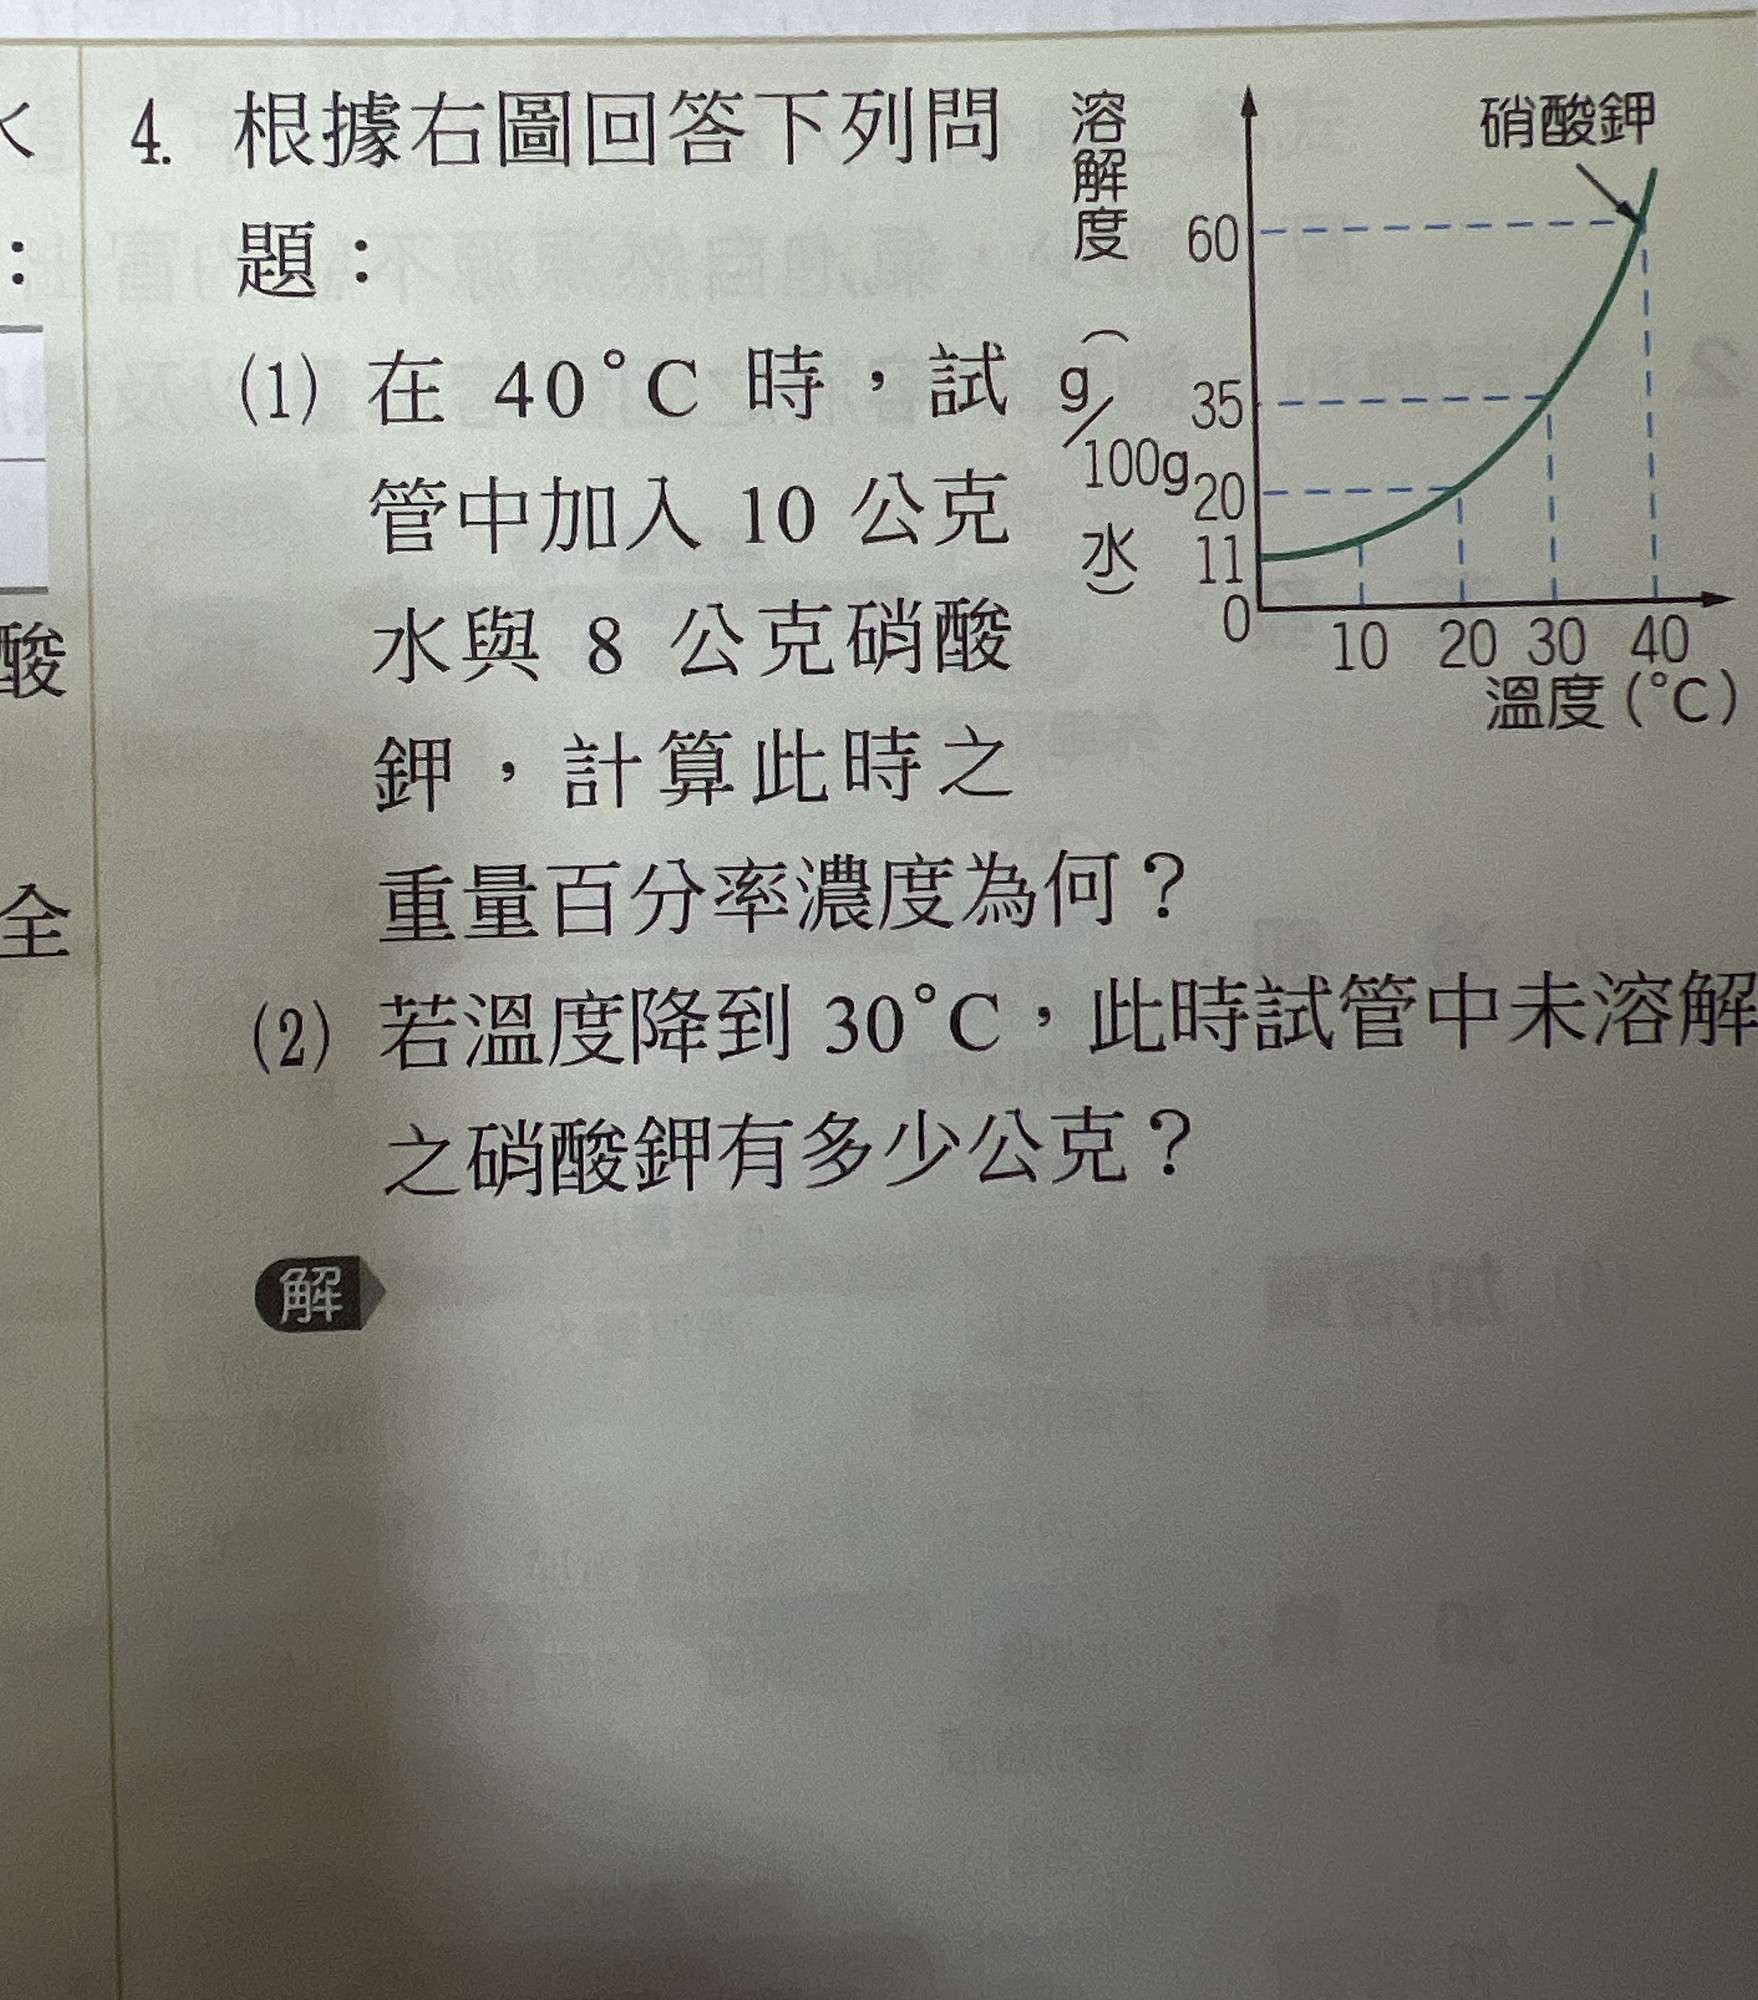 水
：
酸
全
4. 根據右圖回答下列問
題：
(1) 在 40°C 時，試
管中加入 10 公克
水與 8 公克硝酸
鉀，計算此時之
重量百分率濃度為何？
(2) 若溫度降到 30°C，此時試管中未溶解
之硝酸鉀有多少公克？
解
溶解度（g/100g水）
硝酸鉀
60
35
20
11
0
10 20 30 40
溫度(°C)